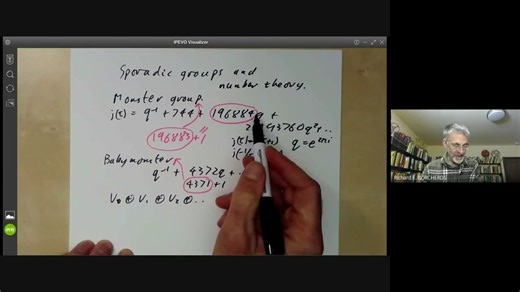 IPEVO Visualizer
Sporadic groups and
number theory.
Monster group
j(τ) = q⁻¹ + 744 + 196884q +
93760q²+..
196883+1
q = e
Baby monster
q⁻¹ + 4372q + ..
4371+1
V₀ ⊕ V₁ ⊕ V₂ ⊕ ..
RICHARD E BORCHERDS